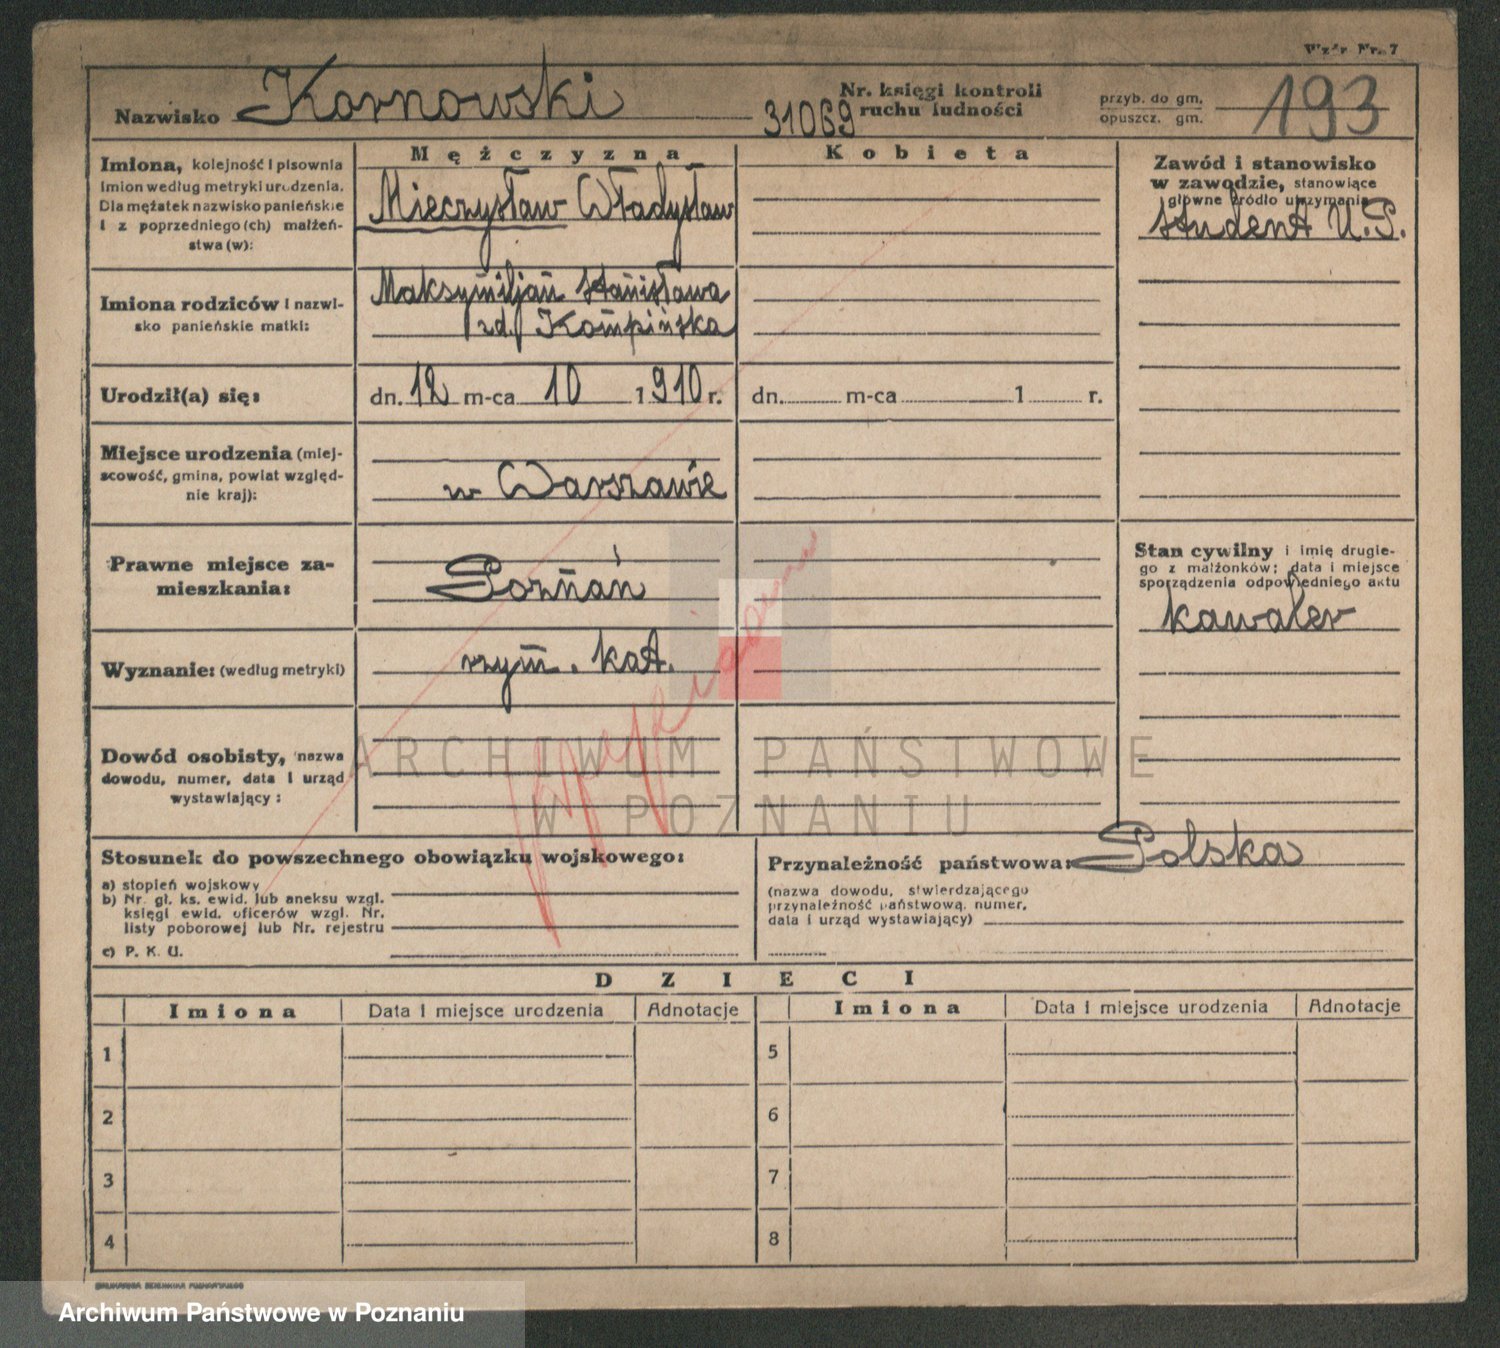 Wzór Nr. 7
Nazwisko Kornowski
Nr. księgi kontroli
ruchu ludności
31069
przyb. do gm.
opuszcz. gm.
193
Imiona, kolejność i pisownia
imion według metryki urodzenia.
Dla mężatek nazwisko panieńskie
i z poprzedniego (ch) małżeń-
stwa (w):
Mężczyzna
Mieczysław Władysław
Kobieta
Zawód i stanowisko
w zawodzie, stanowiące
główne źródło utrzymania
student U. P.
Imiona rodziców i nazwi-
sko panieńskie matki:
Maksymiljan Stanisława
zd. Kompińska
Urodził(a) się:
dn. 12 m-ca 10 1910 r.
dn. m-ca 1 r.
Miejsce urodzenia (miej-
scowość, gmina, powiat względ-
nie kraj):
w Warszawie
Prawne miejsce za-
mieszkania:
Poznań
Stan cywilny i imię drugie-
go z małżonków; data i miejsce
sporządzenia odpowiedniego aktu
kawaler
Wyznanie: (według metryki)
rzym. kat.
Dowód osobisty, nazwa
dowodu, numer, data i urząd
wystawiający:
ARCHIWUM PAŃSTWOWE
W POZNANIU
Stosunek do powszechnego obowiązku wojskowego:
a) stopień wojskowy
b) Nr. gł. ks. ewid. lub aneksu wzgl.
księgi ewid. oficerów wzgl. Nr.
listy poborowej lub Nr. rejestru
c) P. K. U.
Przynależność państwowa: Polska
(nazwa dowodu, stwierdzającego
przynależność państwową, numer,
data i urząd wystawiający)
DZIECI
Imiona Data i miejsce urodzenia Adnotacje Imiona Data i miejsce urodzenia Adnotacje
1 5
2 6
3 7
4 8
DRUKARNIA DZIENNIKA POZNAŃSKIEGO
Archiwum Państwowe w Poznaniu